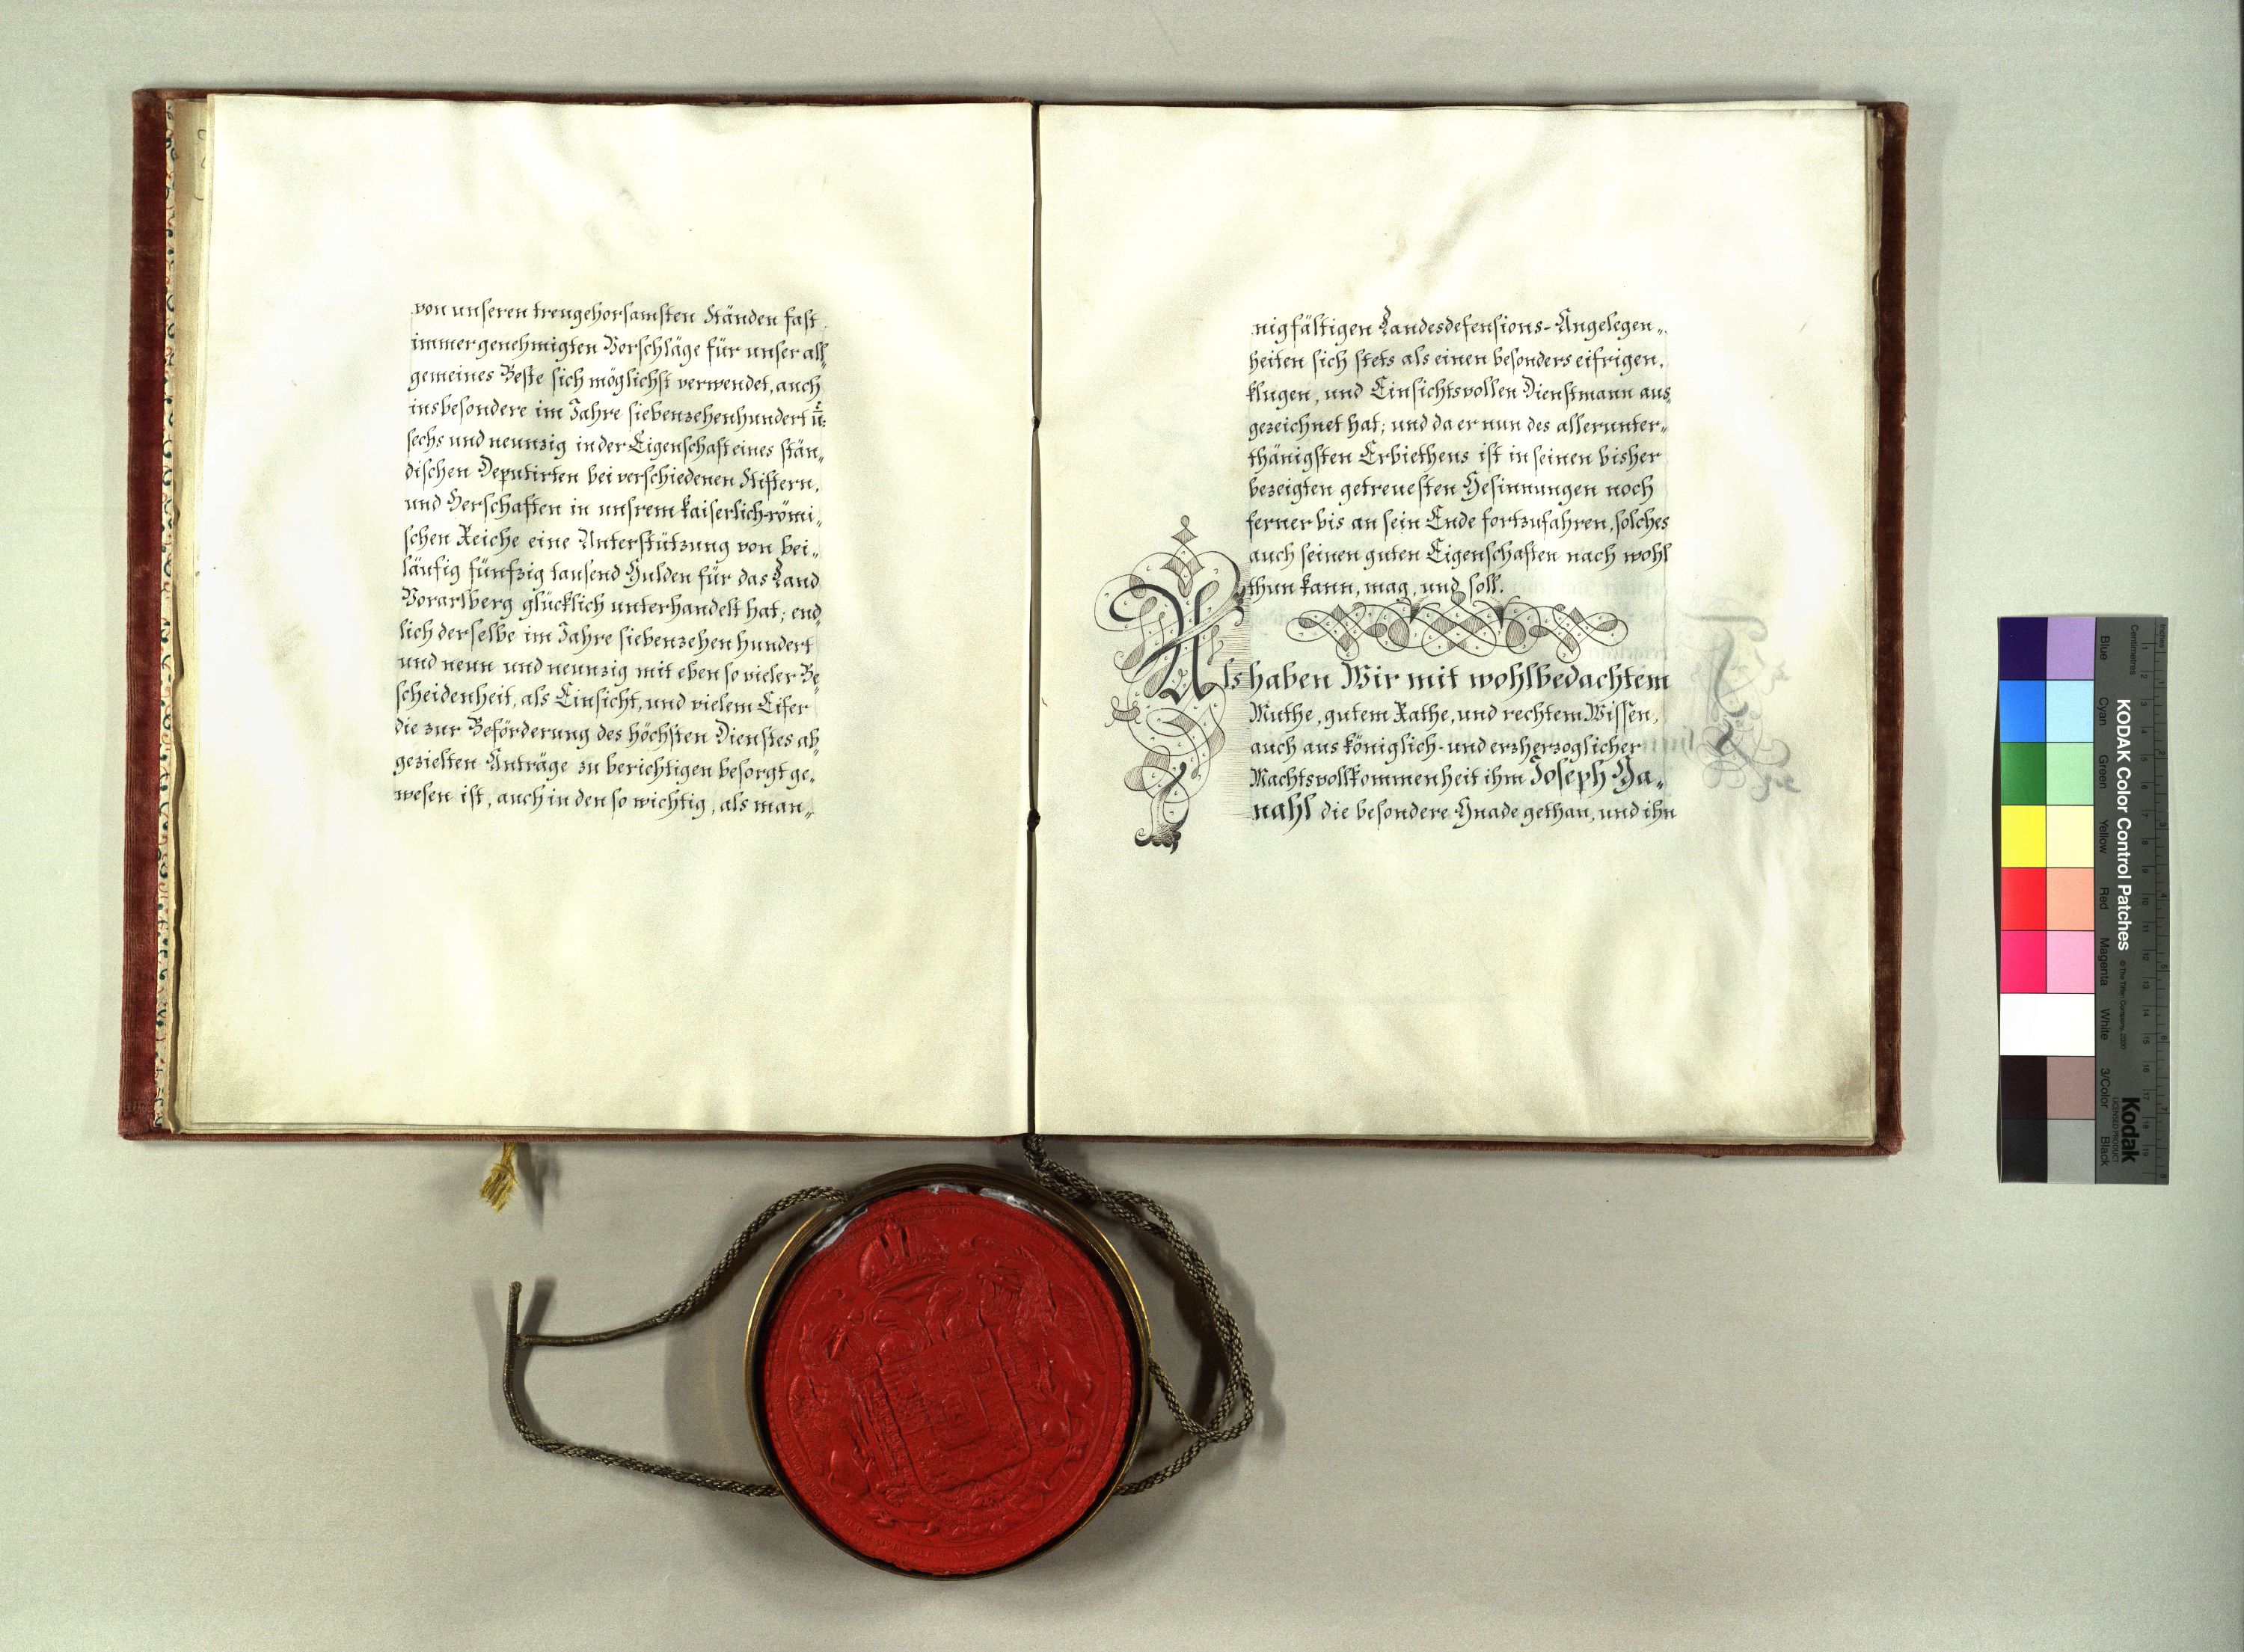 von unseren treugehorsamsten Ständen fast
immer genehmigten Vorschläge für unser all„
gemeines Beste sich möglichst verwendet, auch
insbesondere im Jahre siebenzehenhundert u:
sechs und neunzig in der Eigenschaft eines stän„
dischen Deputirten bei verschiedenen Stiftern,
und Herschaften in unsrem kaiserlich-römi„
schen Reiche eine Unterstützung von bei„
läufig fünfzig tausend Gulden für das Land
Vorarlberg glücklich unterhandelt hat; end„
lich derselbe im Jahre siebenzehen hundert
und neun und neunzig mit eben so vieler Be„
scheidenheit, als Einsicht, und vielem Eifer
die zur Beförderung des höchsten Dienstes ab„
gezielten Anträge zu berichtigen besorgt ge„
wesen ist, auch in den so wichtig, als man„
nigfältigen Landesdefensions-Angelegen„
heiten sich stets als einen besonders eifrigen,
klugen, und Einsichtsvollen Dienstmann aus„
gezeichnet hat; und da er nun des allerunter„
thänigsten Erbiethens ist in seinen bisher
bezeigten getreuesten Gesinnungen noch
ferner bis an sein Ende fortzufahren, solches
auch seinen guten Eigenschaften nach wohl
thun kann, mag, und soll.
Als haben Wir mit wohlbedachtem
Muthe, gutem Rathe, und rechtem Wissen,
auch aus königlich- und erzherzoglicher
Machtsvollkommenheit ihm Joseph Ga„
nahl die besondere Gnade gethan, und ihn
KODAK Color Control Patches
© The Tiffen Company, 2000
Kodak
LICENSED PRODUCT
Inches
Centimetres
Blue
Cyan
Green
Yellow
Red
Magenta
White
3/Color
Black